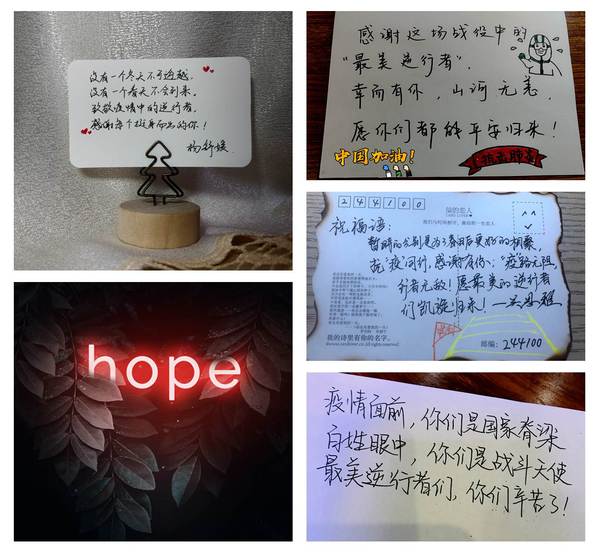 没有一个冬天不可逾越,
没有一个春天不会到来。
致敬疫情中的逆行者,
感谢每个挺身而出的你!
hope
感谢这场战役中的
“最美逆行者”,
幸而有你,山河无恙,
愿你们都能平安归来!
中国加油!
244100
祝福语:
暂时的分别是为了春雨后更好的相聚,
抗“疫”同行,感谢有你;“疫”路无阻,
行者无敌!愿最美的逆行者
们凯旋归来!
我的诗里有你的名字。
邮编:244100
疫情面前,你们是国家脊梁
百姓眼中,你们是战斗天使
最美逆行者们,你们辛苦了!